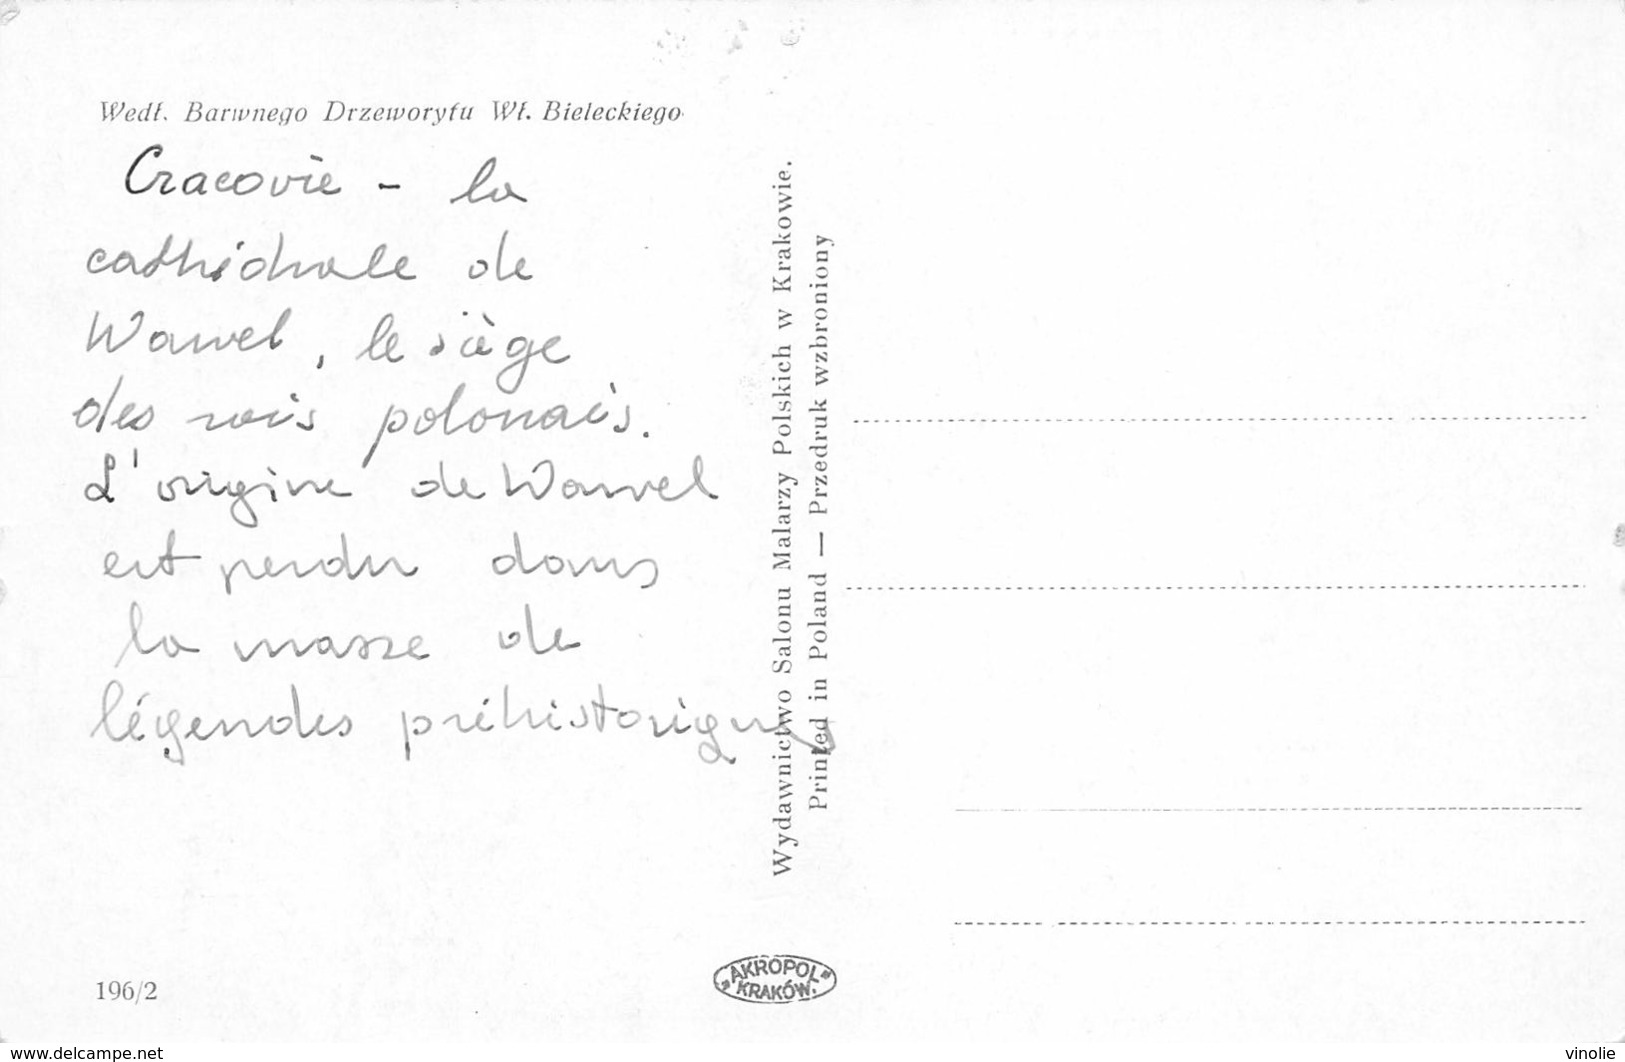 Wedł. Barwnego Drzeworytu Wł. Bieleckiego
Cracovie - la
cathédrale de
Wawel, le siège
des rois polonais.
L'origine de Wawel
est perdu dans
la masse de
légendes préhistoriques
Wydawnictwo Salonu Malarzy Polskich w Krakowie.
Printed in Poland — Przedruk wzbroniony
196/2
„AKROPOL”
KRAKÓW.
www.delcampe.net
vinolie